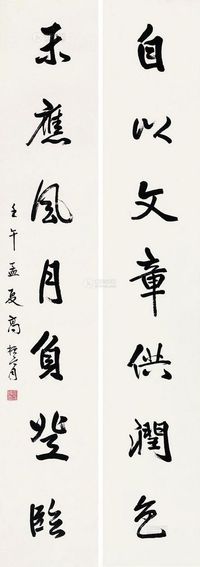 自以文章供润色
未應風月負登臨
壬午孟夏高